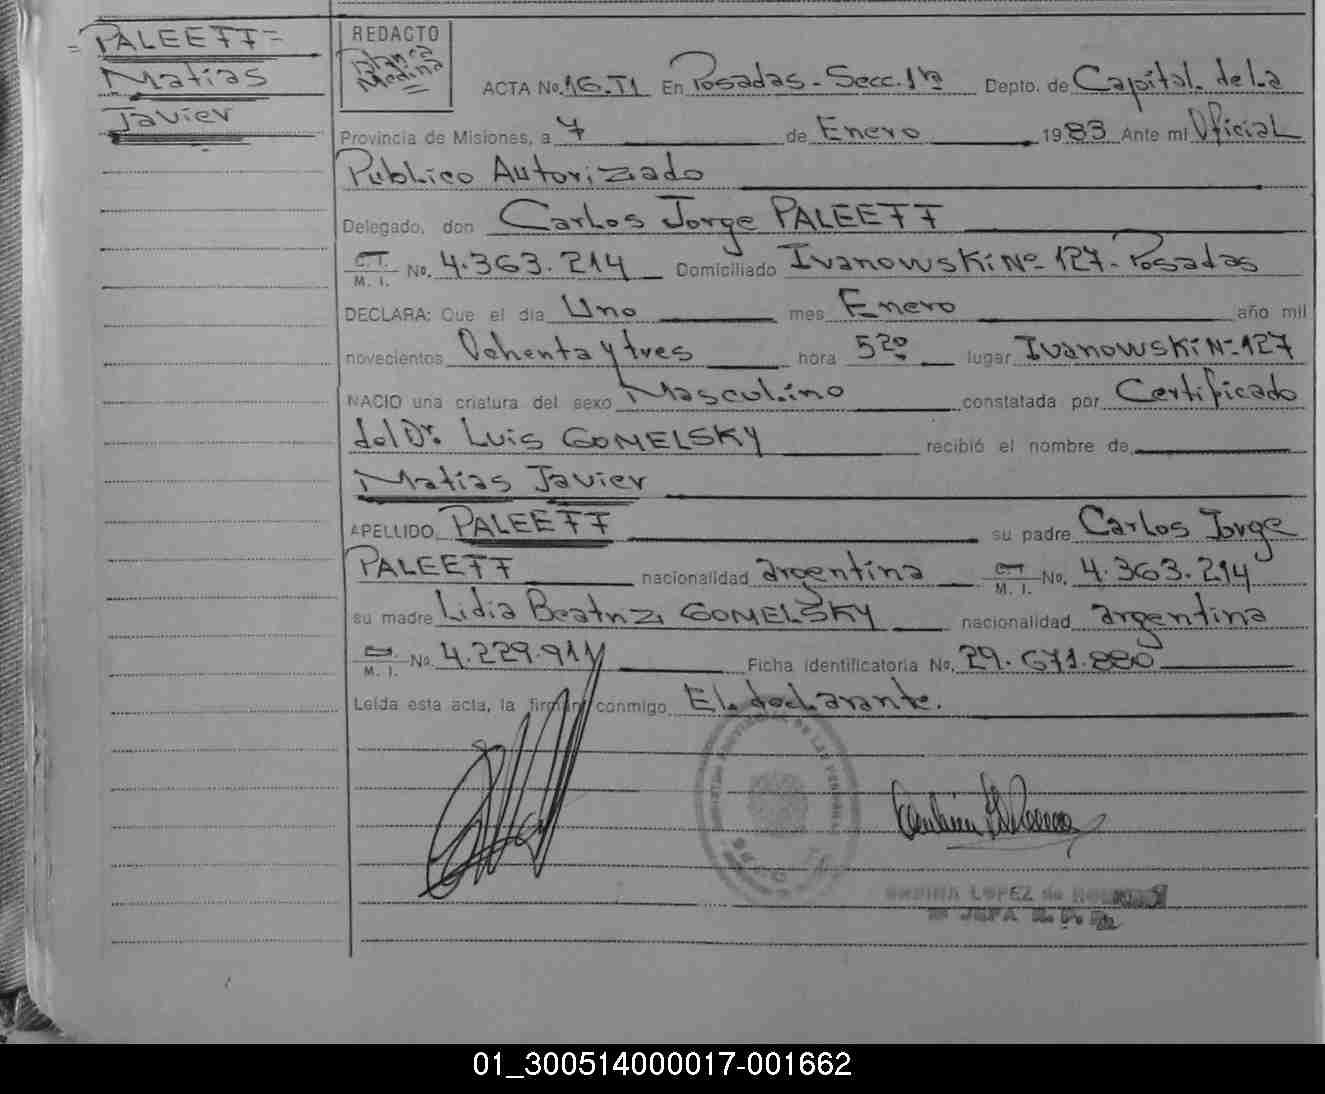 =PALEEFF=
Matías
Javier
REDACTO
Blanca
Medina
ACTA No. 16.T1 En Posadas - Secc. 1ra Depto. de Capital. de la
Provincia de Misiones, a 7 de Enero 1983 Ante mi Oficial
Publico Autorizado
Delegado, don Carlos Jorge PALEEFF
C.I.
M. I. No. 4.363.214 Domiciliado Ivanowski Nº 127- Posadas
DECLARA: Que el día Uno mes Enero año mil
novecientos Ochenta y tres hora 5 20 lugar Ivanowski Nº 127
NACIO una criatura del sexo Masculino constatada por Certificado
del Dr. Luis GOMELSKY recibió el nombre de
Matías Javier
APELLIDO PALEEFF su padre Carlos Jorge
PALEEFF nacionalidad argentina C.I. M. I. No. 4.363.214
su madre Lidia Beatriz GOMELSKY nacionalidad argentina
M. I. No. 4.229.911 Ficha identificatoria No. 29.671.880
Leída esta acta, la firman conmigo El declarante.
LOPEZ de
JEFA R. P.
01_300514000017-001662